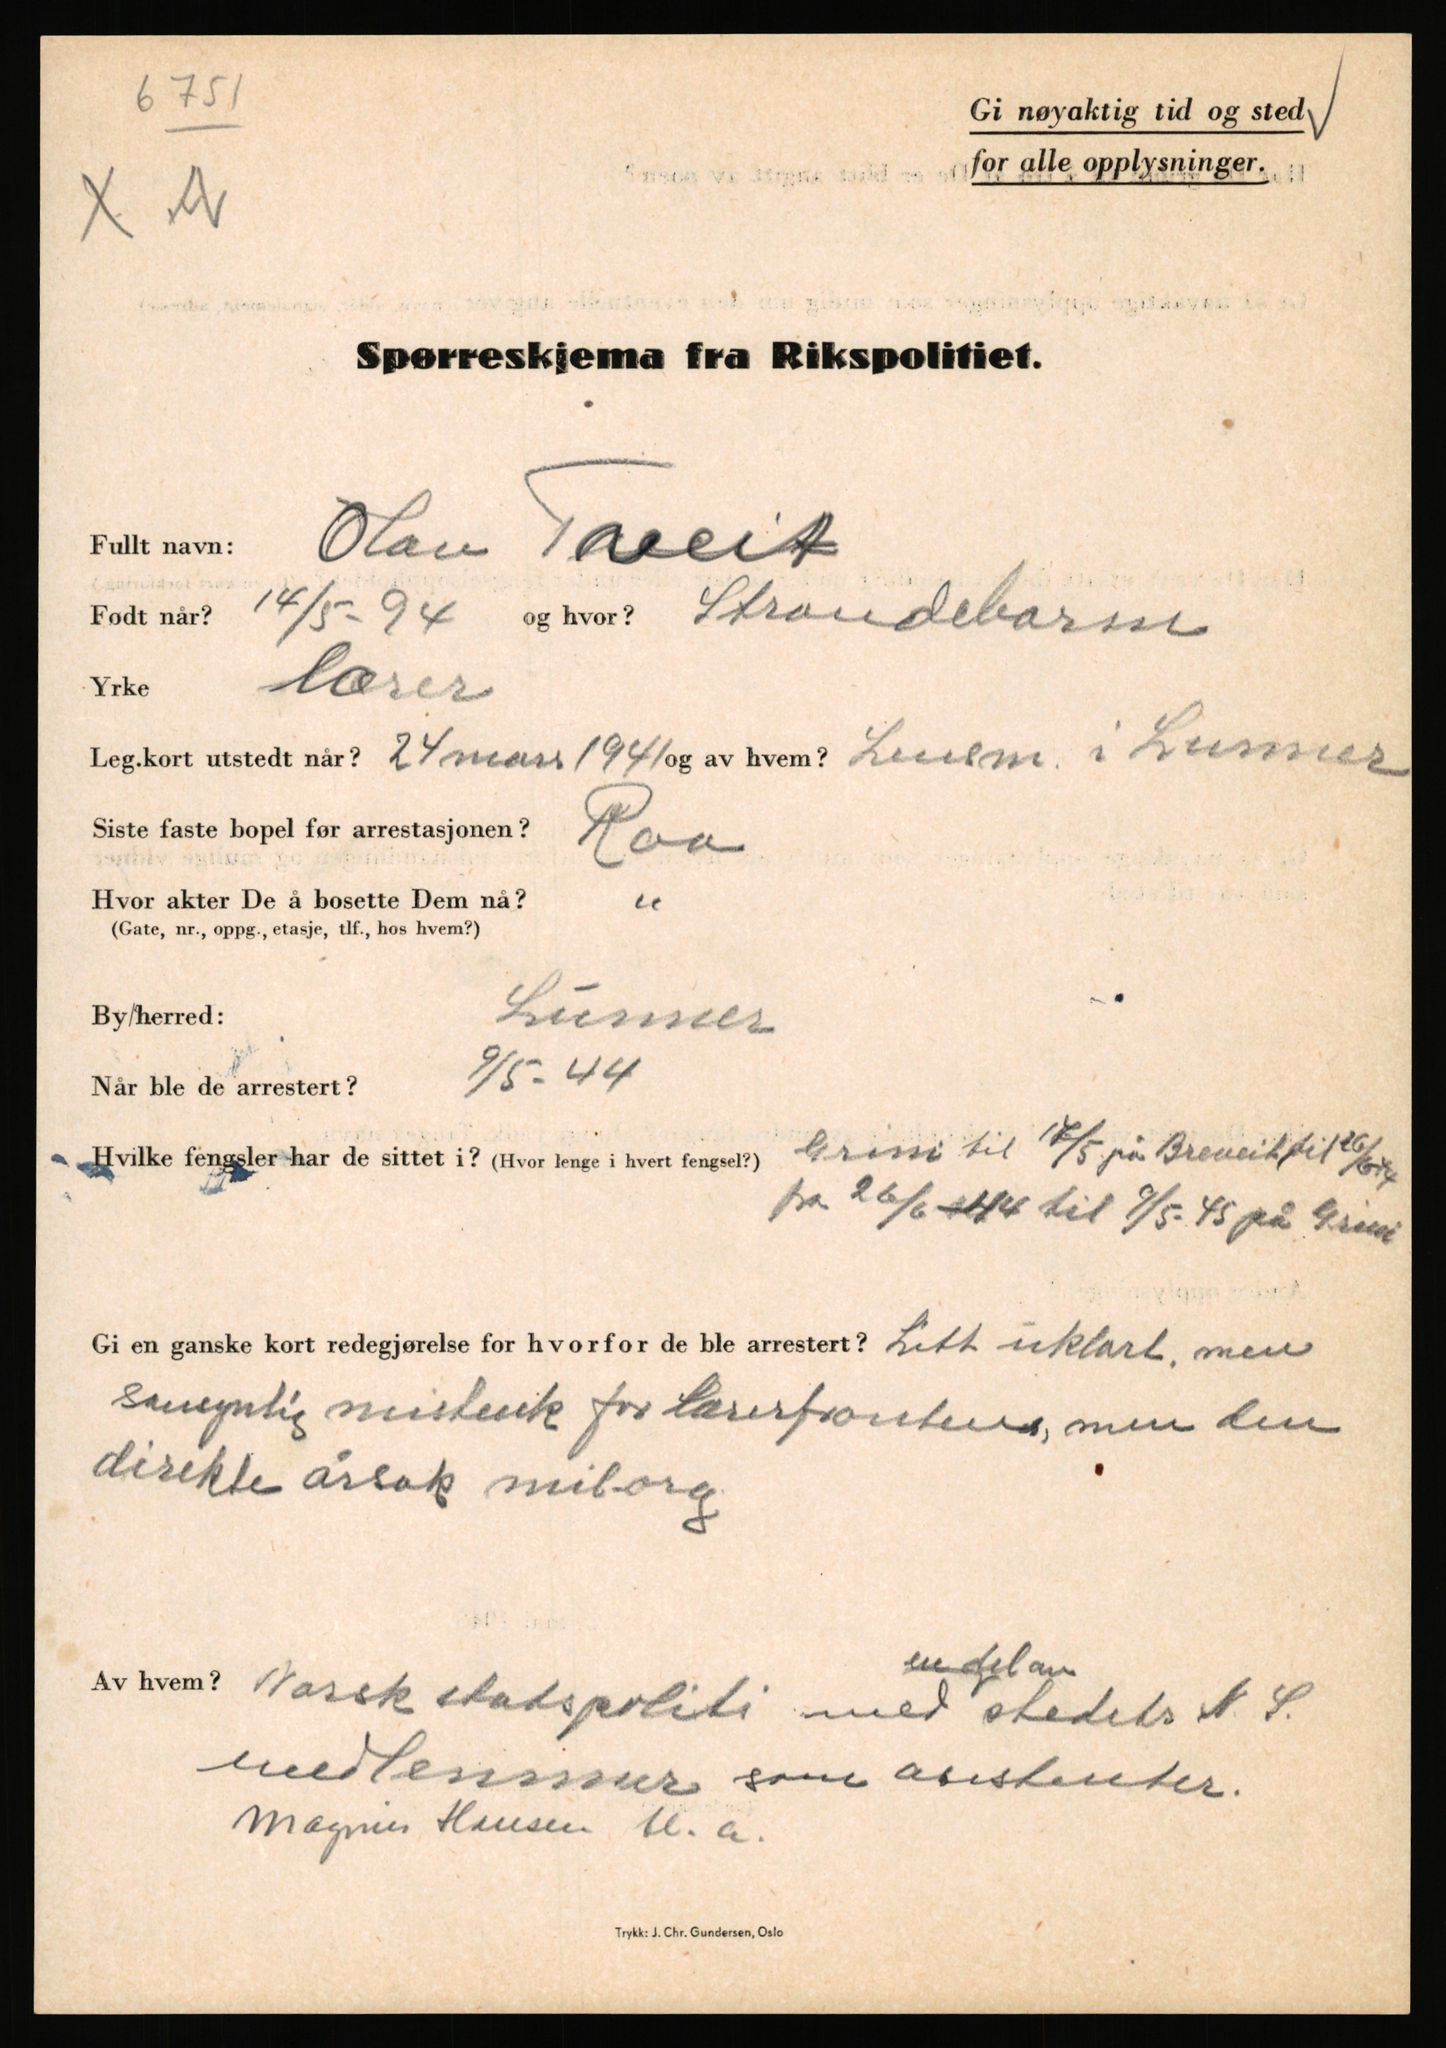 6751
X
Gi nøyaktig tid og sted
for alle opplysninger.
Spørreskjema fra Rikspolitiet.
Fullt navn: Olav Tveit
Født når? 14/5-94 og hvor? Strandebarm
Yrke lærer
Leg.kort utstedt når? 24 mars 1941 og av hvem? Lensm. i Lunner
Siste faste bopel før arrestasjonen? Roa
Hvor akter De å bosette Dem nå? "
(Gate, nr., oppg., etasje, tlf., hos hvem?)
By/herred: Lunner
Når ble de arrestert? 9/5-44
Hvilke fengsler har de sittet i? (Hvor lenge i hvert fengsel?) Grini til 17/5 på Breveit til 26/6-44
fra 26/6 44 til 9/5-45 på Grini
Gi en ganske kort redegjørelse for hvorfor de ble arrestert? Litt uklart, men
sansynlig mistenk for lærerfronten, men den
direkte årsak milorg
Av hvem? Norsk statspoliti med en del av stedets N.S.
medlemmer som asistenter.
Magnus Hansen bl. a.
Trykk: J. Chr. Gundersen, Oslo